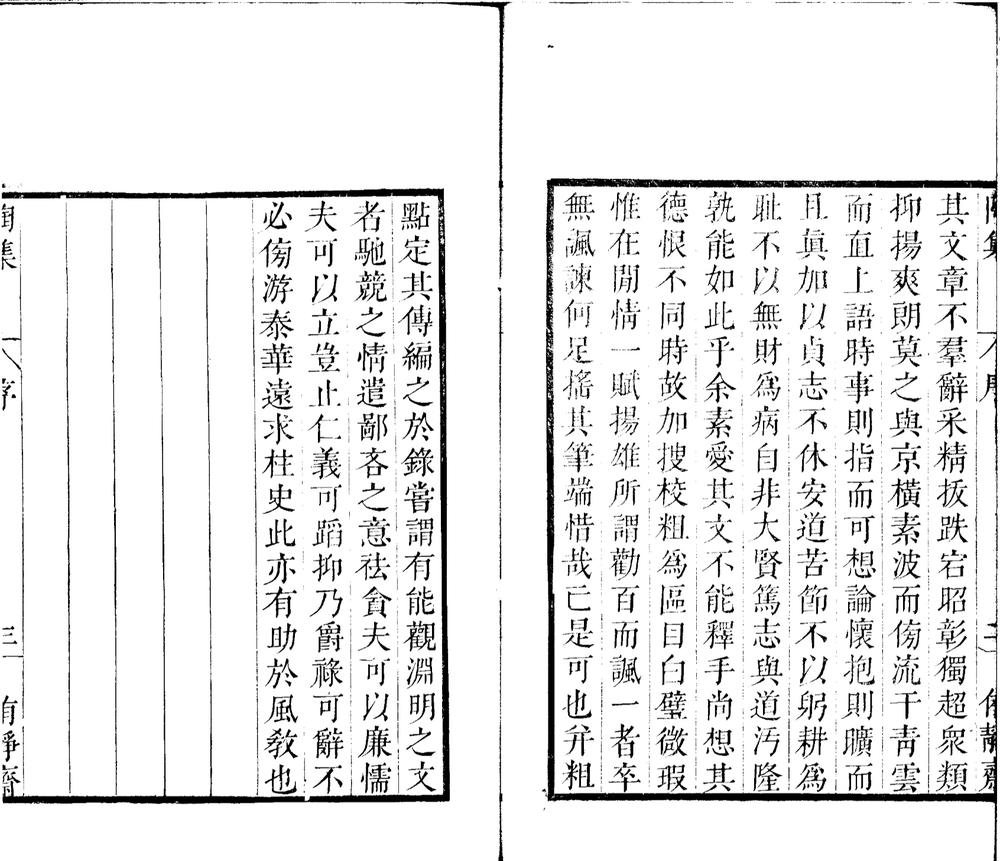 其文章不羣辭采精拔跌宕昭彰獨超衆類
抑揚爽朗莫之與京橫素波而傍流干青雲
而直上語時事則指而可想論懷抱則曠而
且眞加以貞志不休安道苦節不以躬耕爲
恥不以無財爲病自非大賢篤志與道汚隆
孰能如此乎余素愛其文不能釋手尚想其
德恨不同時故加搜校粗爲區目白璧微瑕
惟在閒情一賦揚雄所謂勸百而諷一者卒
無諷諫何足搖其筆端惜哉亡是可也幷粗
點定其傳編之於錄嘗謂有能觀淵明之文
者馳競之情遣鄙吝之意祛貪夫可以廉懦
夫可以立豈止仁義可蹈抑乃爵祿可辭不
必傍游泰華遠求柱史此亦有助於風敎也
陶集
序
三